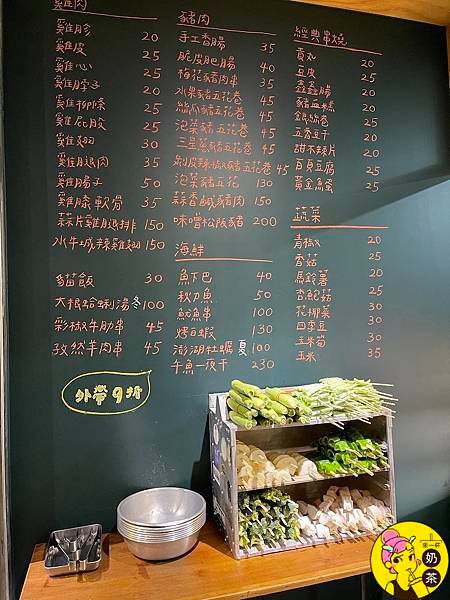 雞肉
雞胗 20
雞皮 25
雞心 25
雞脖子 20
雞柳條 25
雞屁股 25
雞翅 30
雞腿肉 35
雞腸子 50
雞膝軟骨 35
蒜片雞腿排 150
水牛城辣雞翅 150
貓飯 30
大根蛤蜊湯 冬 100
彩椒牛肋串 45
孜然羊肉串 45
外帶9折
豬肉
手工香腸 35
脆皮肥腸 40
梅花豬肉串 35
水果豬五花卷 45
絲瓜豬五花卷 45
泡菜豬五花卷 45
三星蔥豬五花卷 45
剝皮辣椒豬五花卷 45
泡菜豬五花 130
蒜香鹹豬肉 150
味噌松阪豬 200
海鮮
魚下巴 40
秋刀魚 50
魷魚串 100
烤白蝦 130
澎湖牡蠣 夏 100
午魚一夜干 230
經典串燒
貢丸 20
豆皮 20
鑫鑫腸 20
豬血糕 20
銀絲卷 20
五香豆干
甜不辣片 20
百頁豆腐 20
黃金魚蛋 20
蔬菜
青椒 20
香菇 25
馬鈴薯 25
杏鮑菇 25
花椰菜 30
四季豆 30
玉米筍 30
玉米 35
來一杯
奶茶